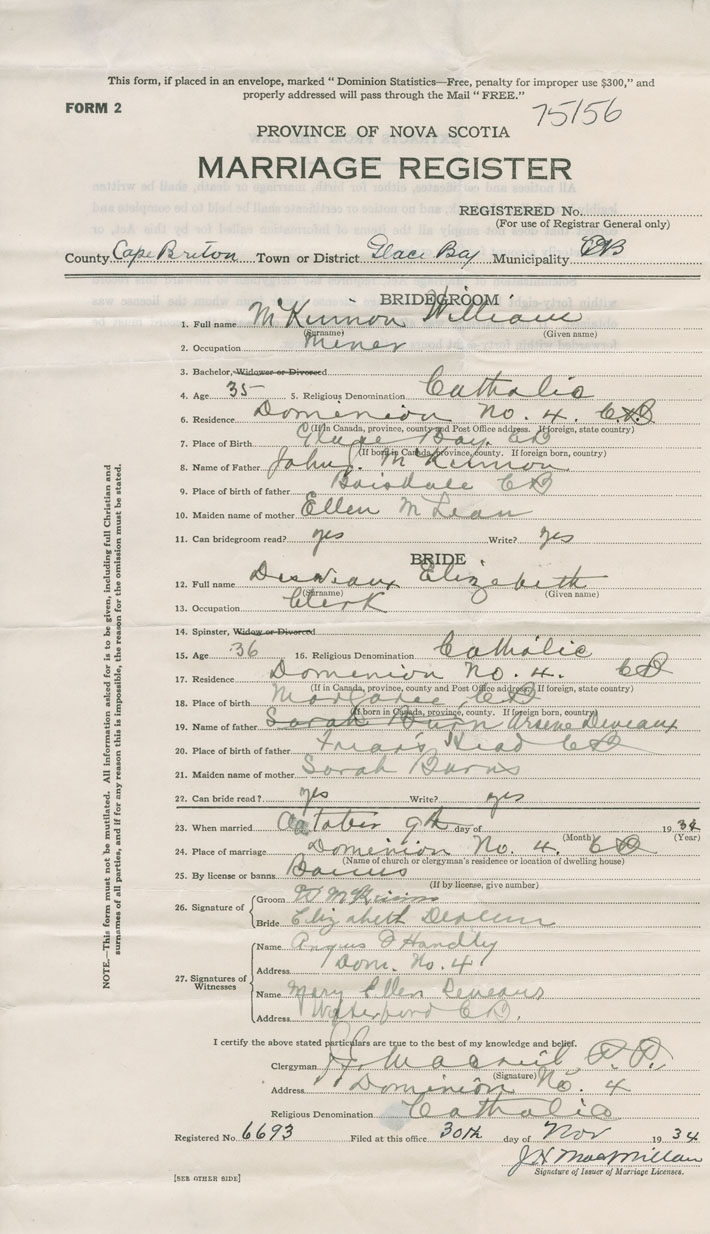 This form, if placed in an envelope, marked "Dominion Statistics—Free, penalty for improper use $300," and
properly addressed will pass through the Mail "FREE."
FORM 2
75156
PROVINCE OF NOVA SCOTIA
MARRIAGE REGISTER
REGISTERED No.
(For use of Registrar General only)
County Cape Briton Town or District Glace Bay Municipality CB
BRIDEGROOM
1. Full name McKinnon William
(Surname) (Given name)
2. Occupation Miner
3. Bachelor, Widower or Divorced
4. Age 35 5. Religious Denomination Catholic
6. Residence Dominion No. 4. C.B
(If in Canada, province, county and Post Office address. If foreign, state country)
7. Place of Birth Glace Bay. CB
(If born in Canada, province, county. If foreign born, country)
8. Name of Father John J. McKinnon
9. Place of birth of father Boisdale CB
10. Maiden name of mother Ellen McLean
11. Can bridegroom read? yes Write? yes
BRIDE
12. Full name Deveaux Elizabeth
(Surname) (Given name)
13. Occupation Clerk
14. Spinster, Widow or Divorced
15. Age 36 16. Religious Denomination Catholic
17. Residence Dominion No. 4. CB
(If in Canada, province, county and Post Office address. If foreign, state country)
18. Place of birth Margaree, CB
(If born in Canada, province, county. If foreign born, country)
19. Name of father Sarah Burn Arsene Deveaux
20. Place of birth of father Friar's Head CB
21. Maiden name of mother Sarah Burns
22. Can bride read? yes Write? yes
23. When married October 9th day of 1934
(Month) (Year)
24. Place of marriage Dominion No. 4. CB
(Name of church or clergyman's residence or location of dwelling house)
25. By license or banns Banns
(If by license, give number)
26. Signature of Groom W McKinnon
Bride Elizabeth Deveaux
27. Signatures of Witnesses
Name Angus J Handley
Address Dom. No. 4
Name Mary Ellen Deveaux
Address Waterford CB.
I certify the above stated particulars are true to the best of my knowledge and belief.
Clergyman J. J. Macneil P.P.
(Signature)
Address Dominion No. 4
Religious Denomination Catholic
Registered No. 6693 Filed at this office 30th day of Nov 1934
J H MacMillan
Signature of Issuer of Marriage Licenses.
[SEE OTHER SIDE]
NOTE.—This form must not be mutilated. All information asked for is to be given, including full Christian and
surnames of all parties, and if for any reason this is impossible, the reason for the omission must be stated.